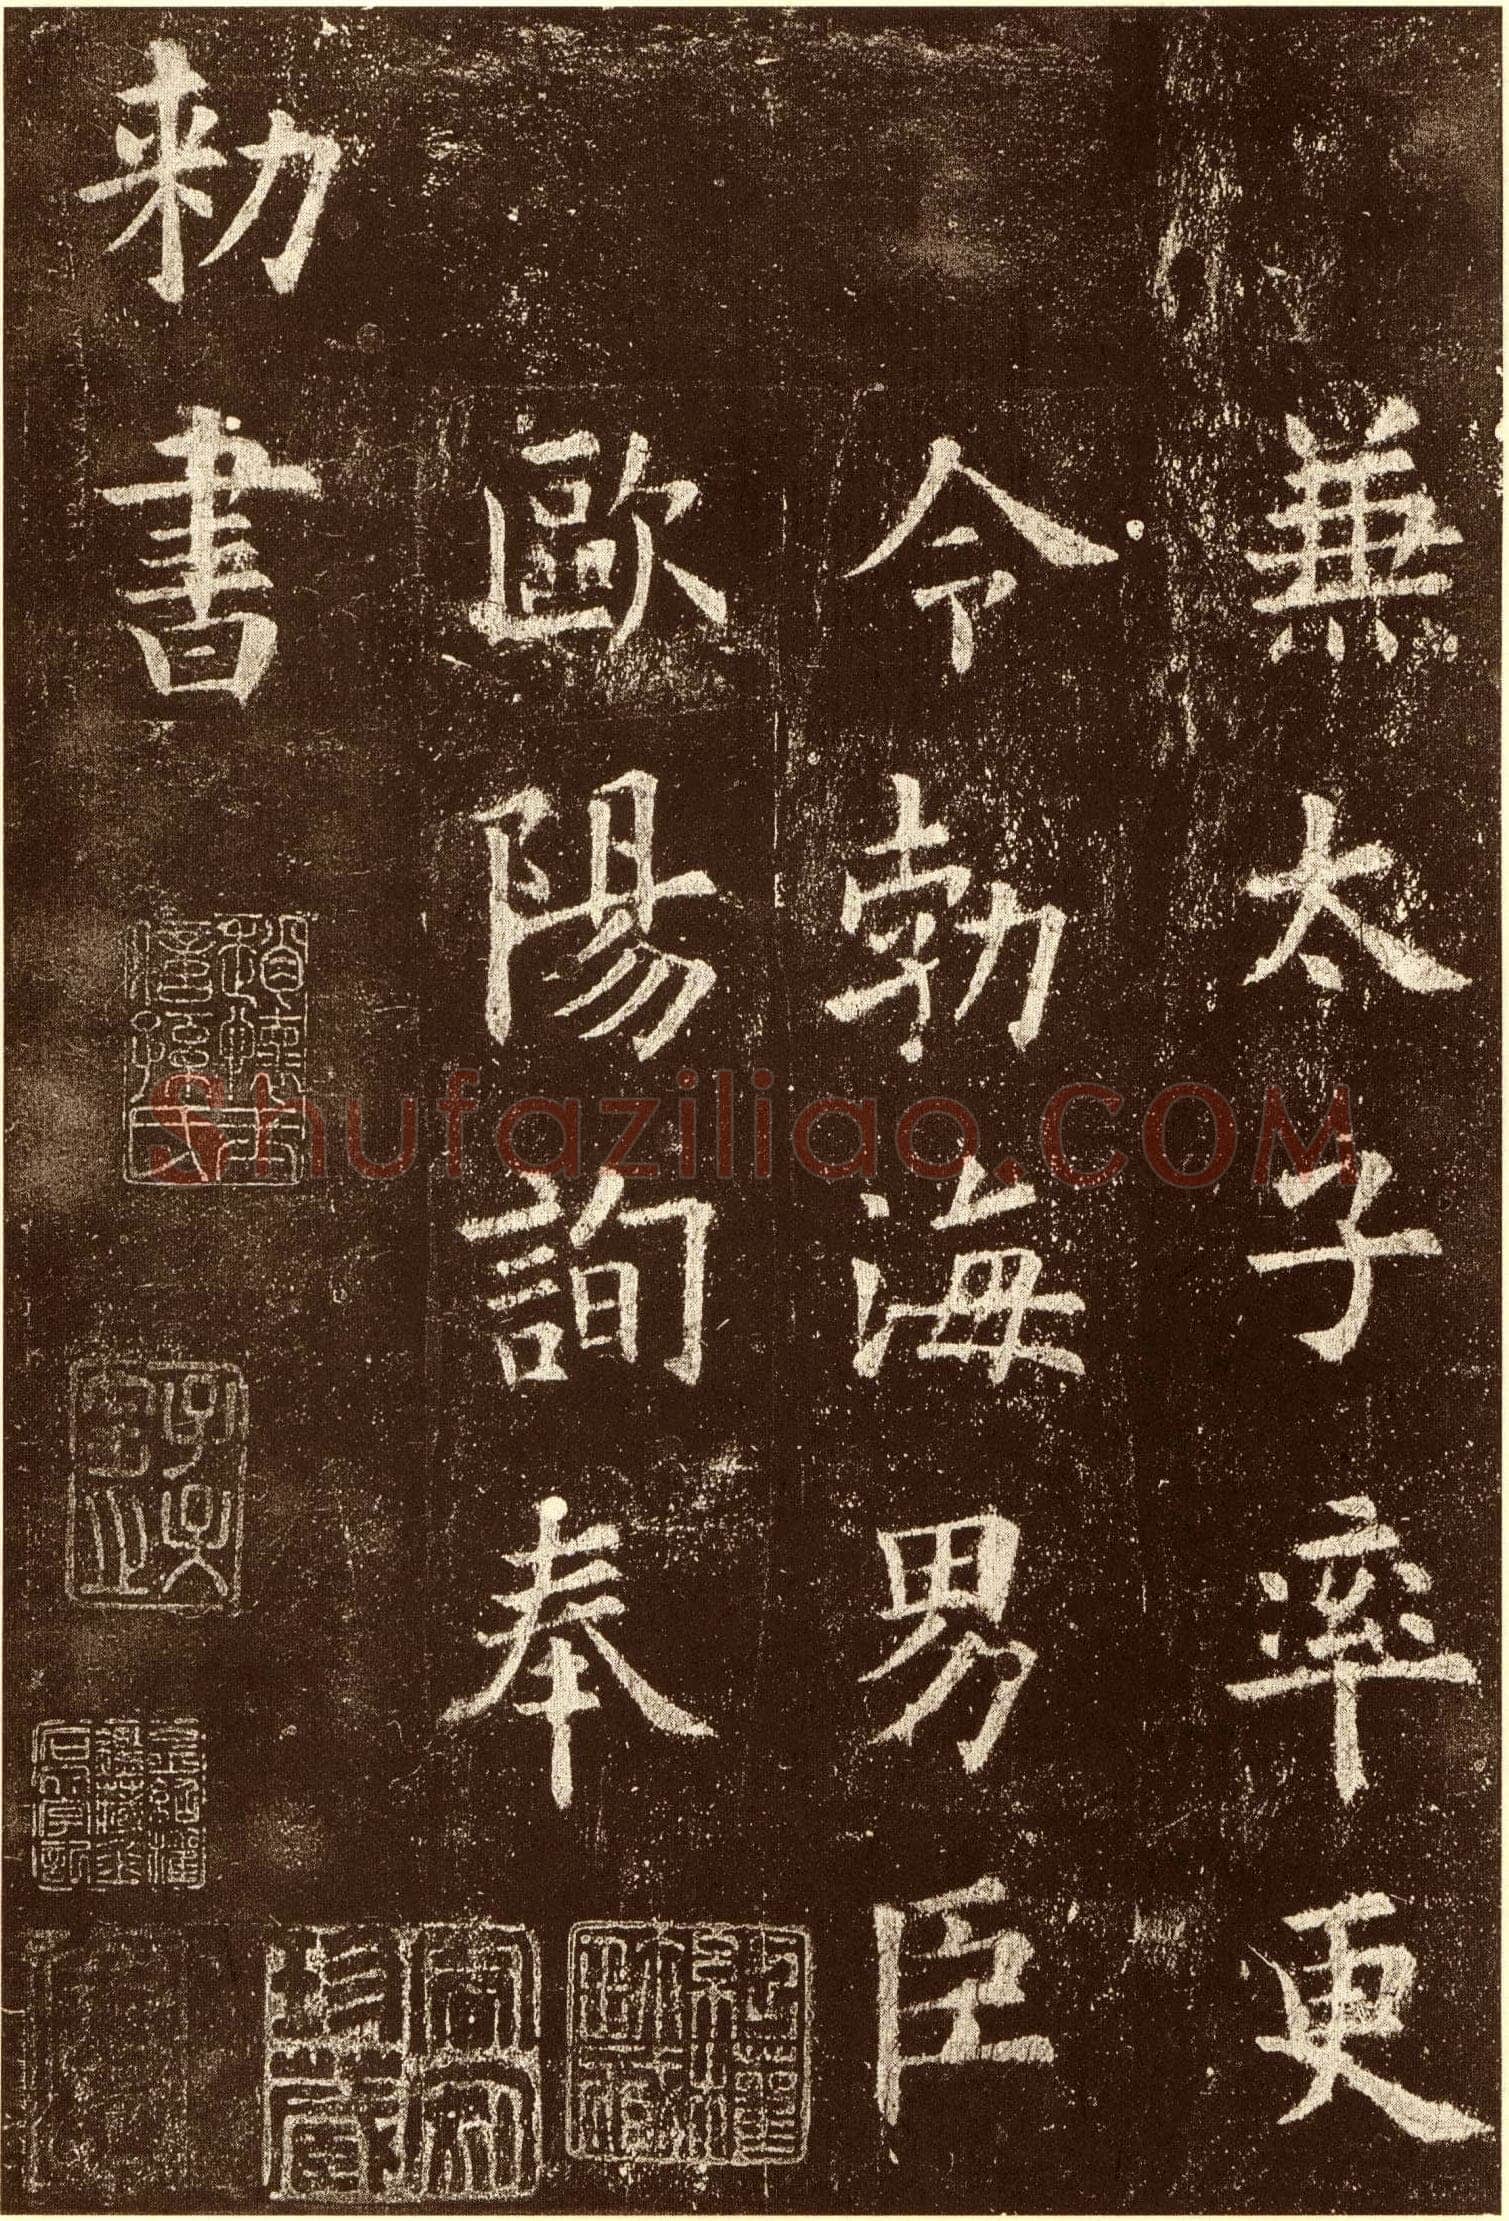 兼太子率更
令勃海男臣
歐陽詢奉
勅書
Shufaziliao.COM